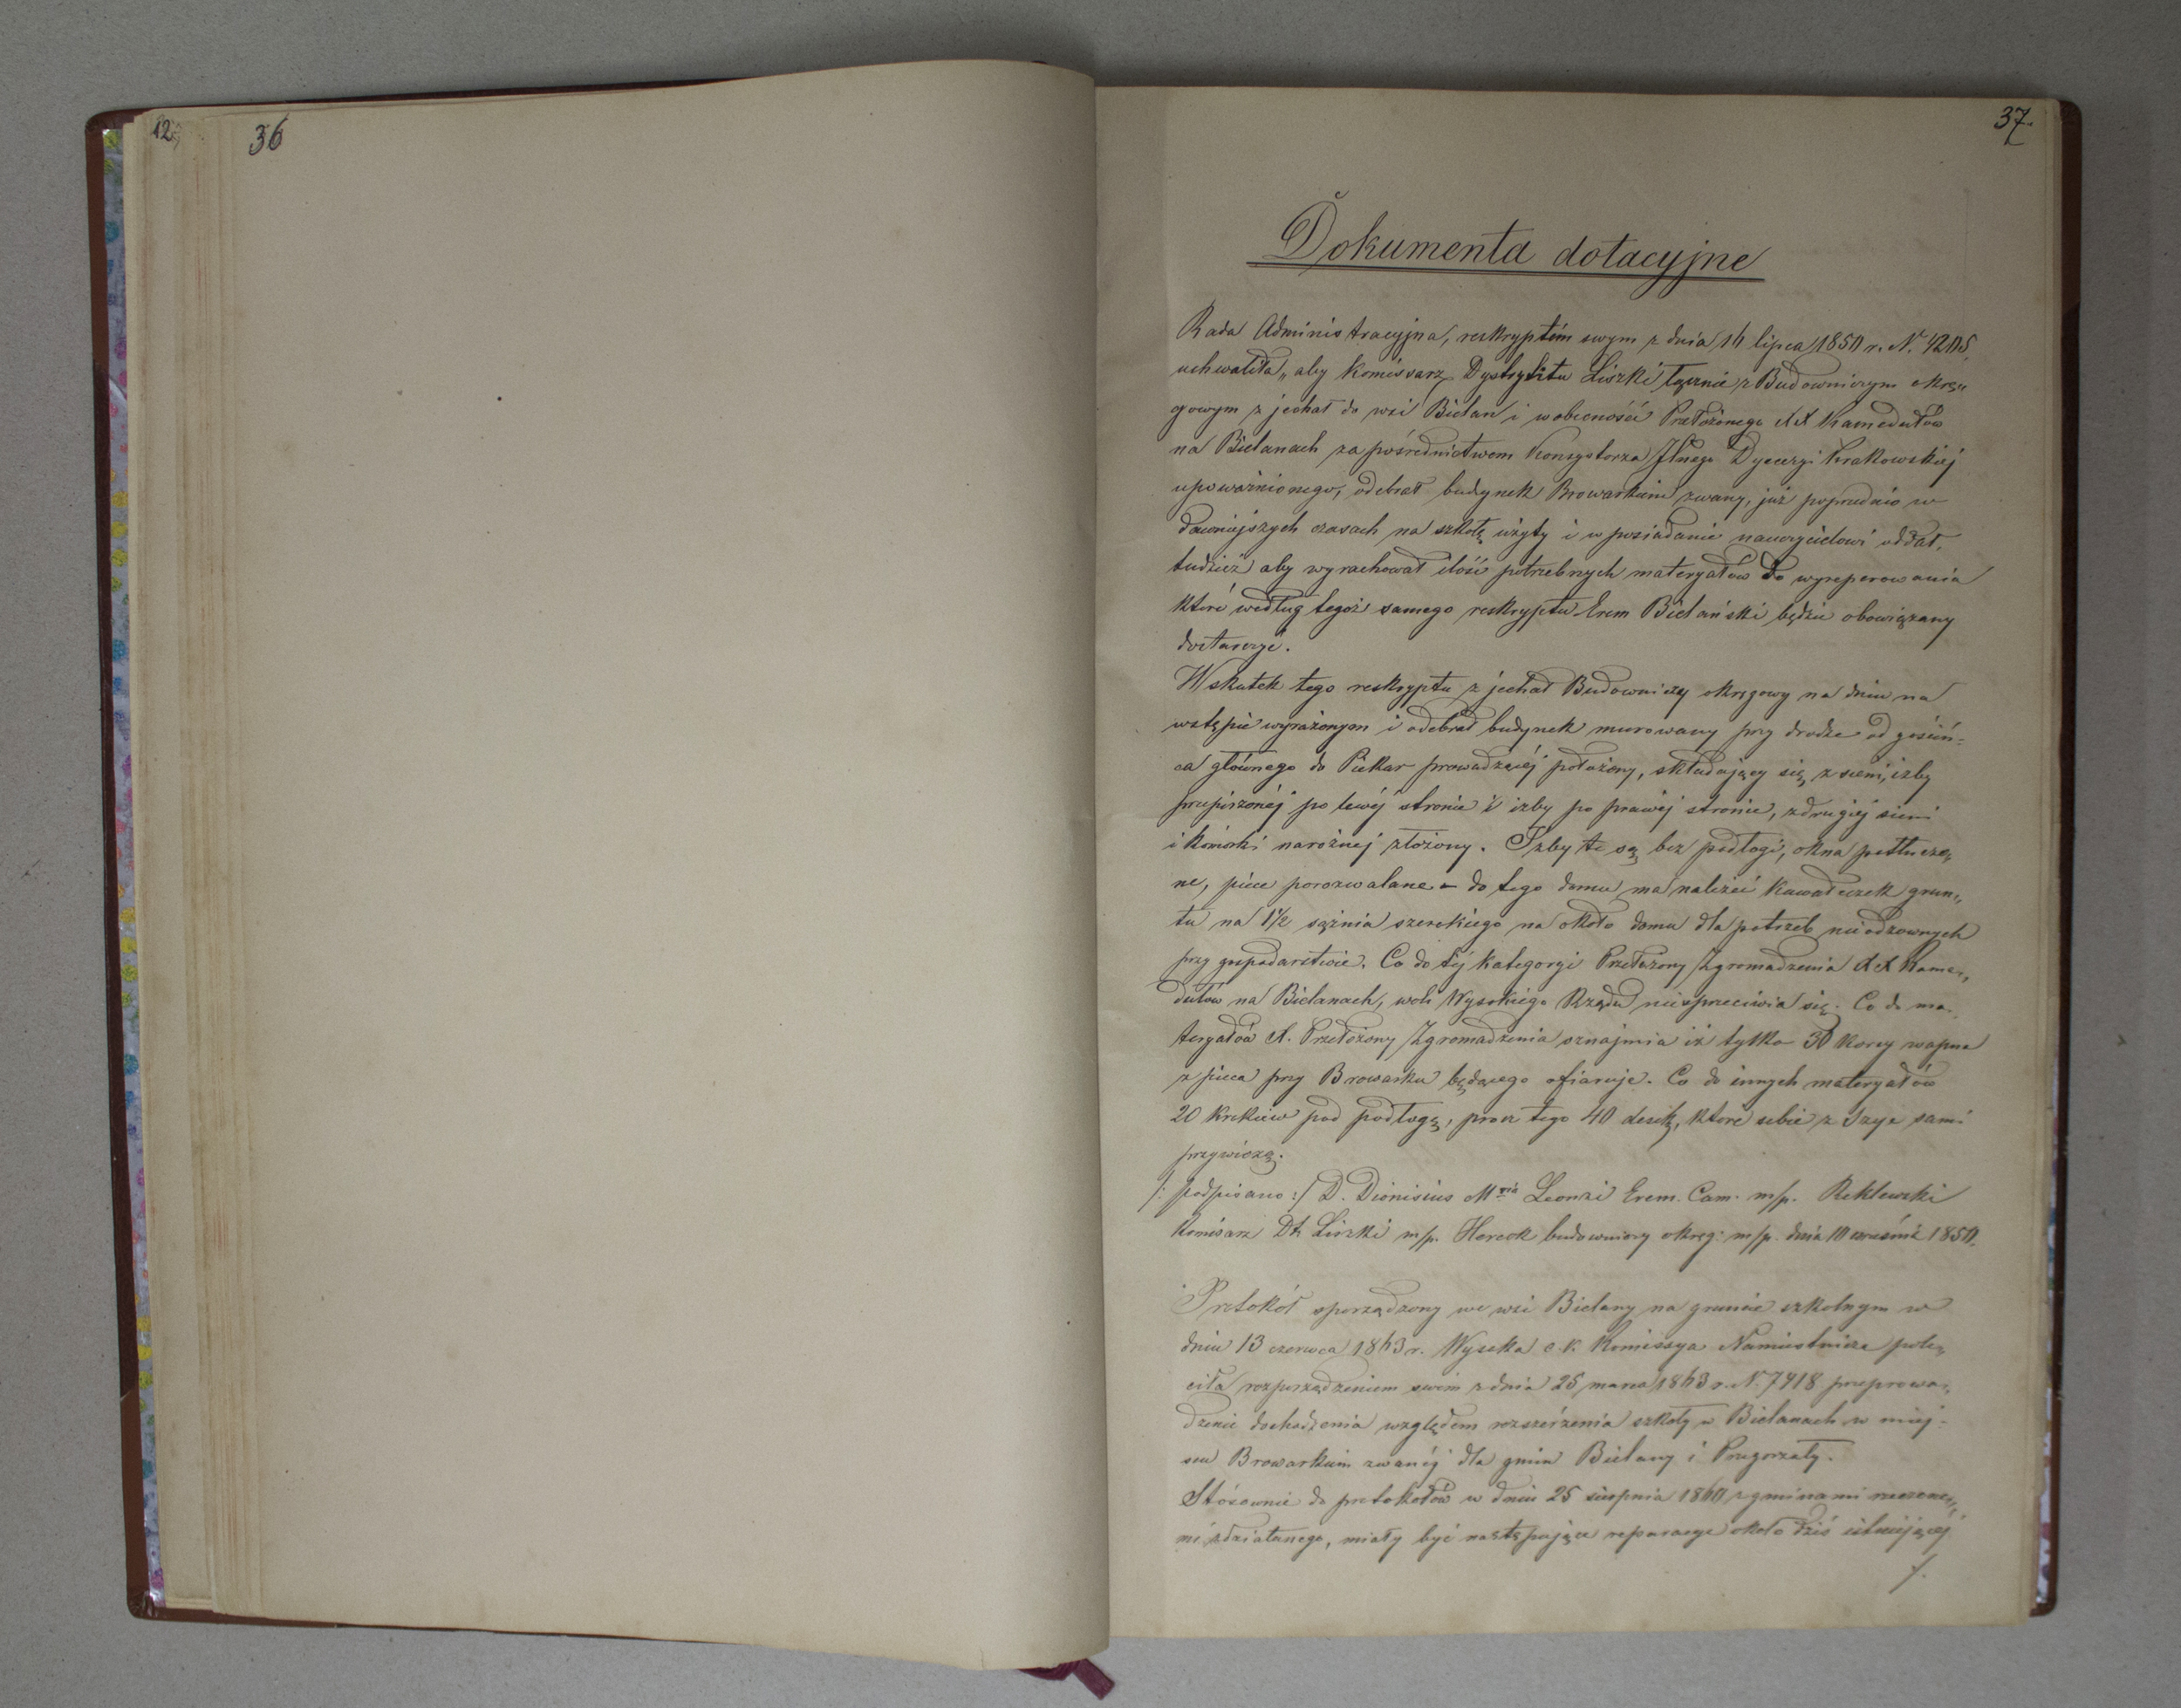 12
36
37.
Dokumenta dotacyjne
Rada Administracyjna, reskryptem swym z dnia 16 lipca 1850 r. N.
uchwaliła „aby komissarz Dystryktu Liszki łącznie z Budowniczym okrę„
gowym zjechał do wsi Bielan i w obecności Przełożonego XX Kamedułów
na Bielanach za pośrednictwem Konsystorza Jlnego Dyecezyi Krakowskiéj
upoważnionego, odebrał budynek Browarkiem zwany, już poprzednio w
dawniejszych czasach na szkołę użyty i w posiadanie nauczycielowi oddał,
tudzież aby wyrachował ilość potrzebnych materyałów do wyreperowania
które według tegoż samego reskryptu Erem Bielański będzie obowiązany
dostarczyć.
Wskutek tego reskryptu zjechał Budowniczy okręgowy na dniu na
wstępie wyrażonym i odebrał budynek murowany przy drodze od gościń=
ca głównego do Piekar prowadzącéj położony, składający się z sieni, izby
przepierzonéj po lewéj stronie i izby po prawéj stronie, z drugiéj sieni
i komórki narożnej złożony. Izby te są bez podłogi, okna potłuczo„
ne, piece porozwalane – do tego domu ma należeć kawałeczek grun„
tu na 1½ sążnia szerokiego na około domu dla potrzeb nieodzownych
przy gospodarstwie. Co do téj kategoryi Przełożony Zgromadzenia XX Kame„
dułów na Bielanach, woli Wysokiego Rządu niesprzeciwia się. Co do ma„
teryałów X. Przełożony Zgromadzenia oznajmia iż tylko 30 korcy wapna
z pieca przy Browarku będącego ofiaruje. Co do innych materyałów
20 krokiew pod podłogę, prócz tego 40 desek, które sobie z sami
przywiozą.
/: podpisano :/ D. Dionisius Mria Leonzi Erem. Cam. m/p. Reklewski
Komisarz Dt. Liszki m/p. budowniczy okręg: m/p. dnia 10 września 1850.
Protokół sporządzony we wsi Bielany na gruncie szkolnym w
dniu 13 czerwca 1863 r. Wysoka c. k. Komissya Namiestnicza pole„
ciła rozporządzeniem swém z dnia 25 marca 1863 r. N. 7918 przeprowa„
dzenie dochodzenia względem rozszerzenia szkoły w Bielanach w miej=
scu Browarkiem zwanéj dla gmin Bielany i Przegorzały.
Stósownie do protokołów w dniu 25 sierpnia 1860 z gminami rzeczone„
mi zdziałanego, miały być następujące reparacye około dziś istniejącéj
/.